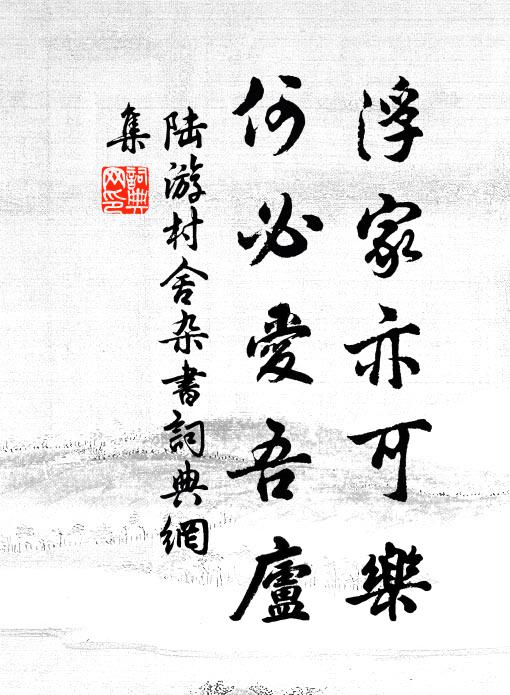 浮家亦可樂
何必愛吾廬
陆游村舍杂書詞典網
集
詞典网印